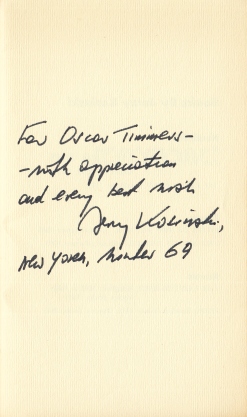 For Oscar Timmers -
- with appreciation
and every best wish
Jerzy Kosinski,
New York, 69